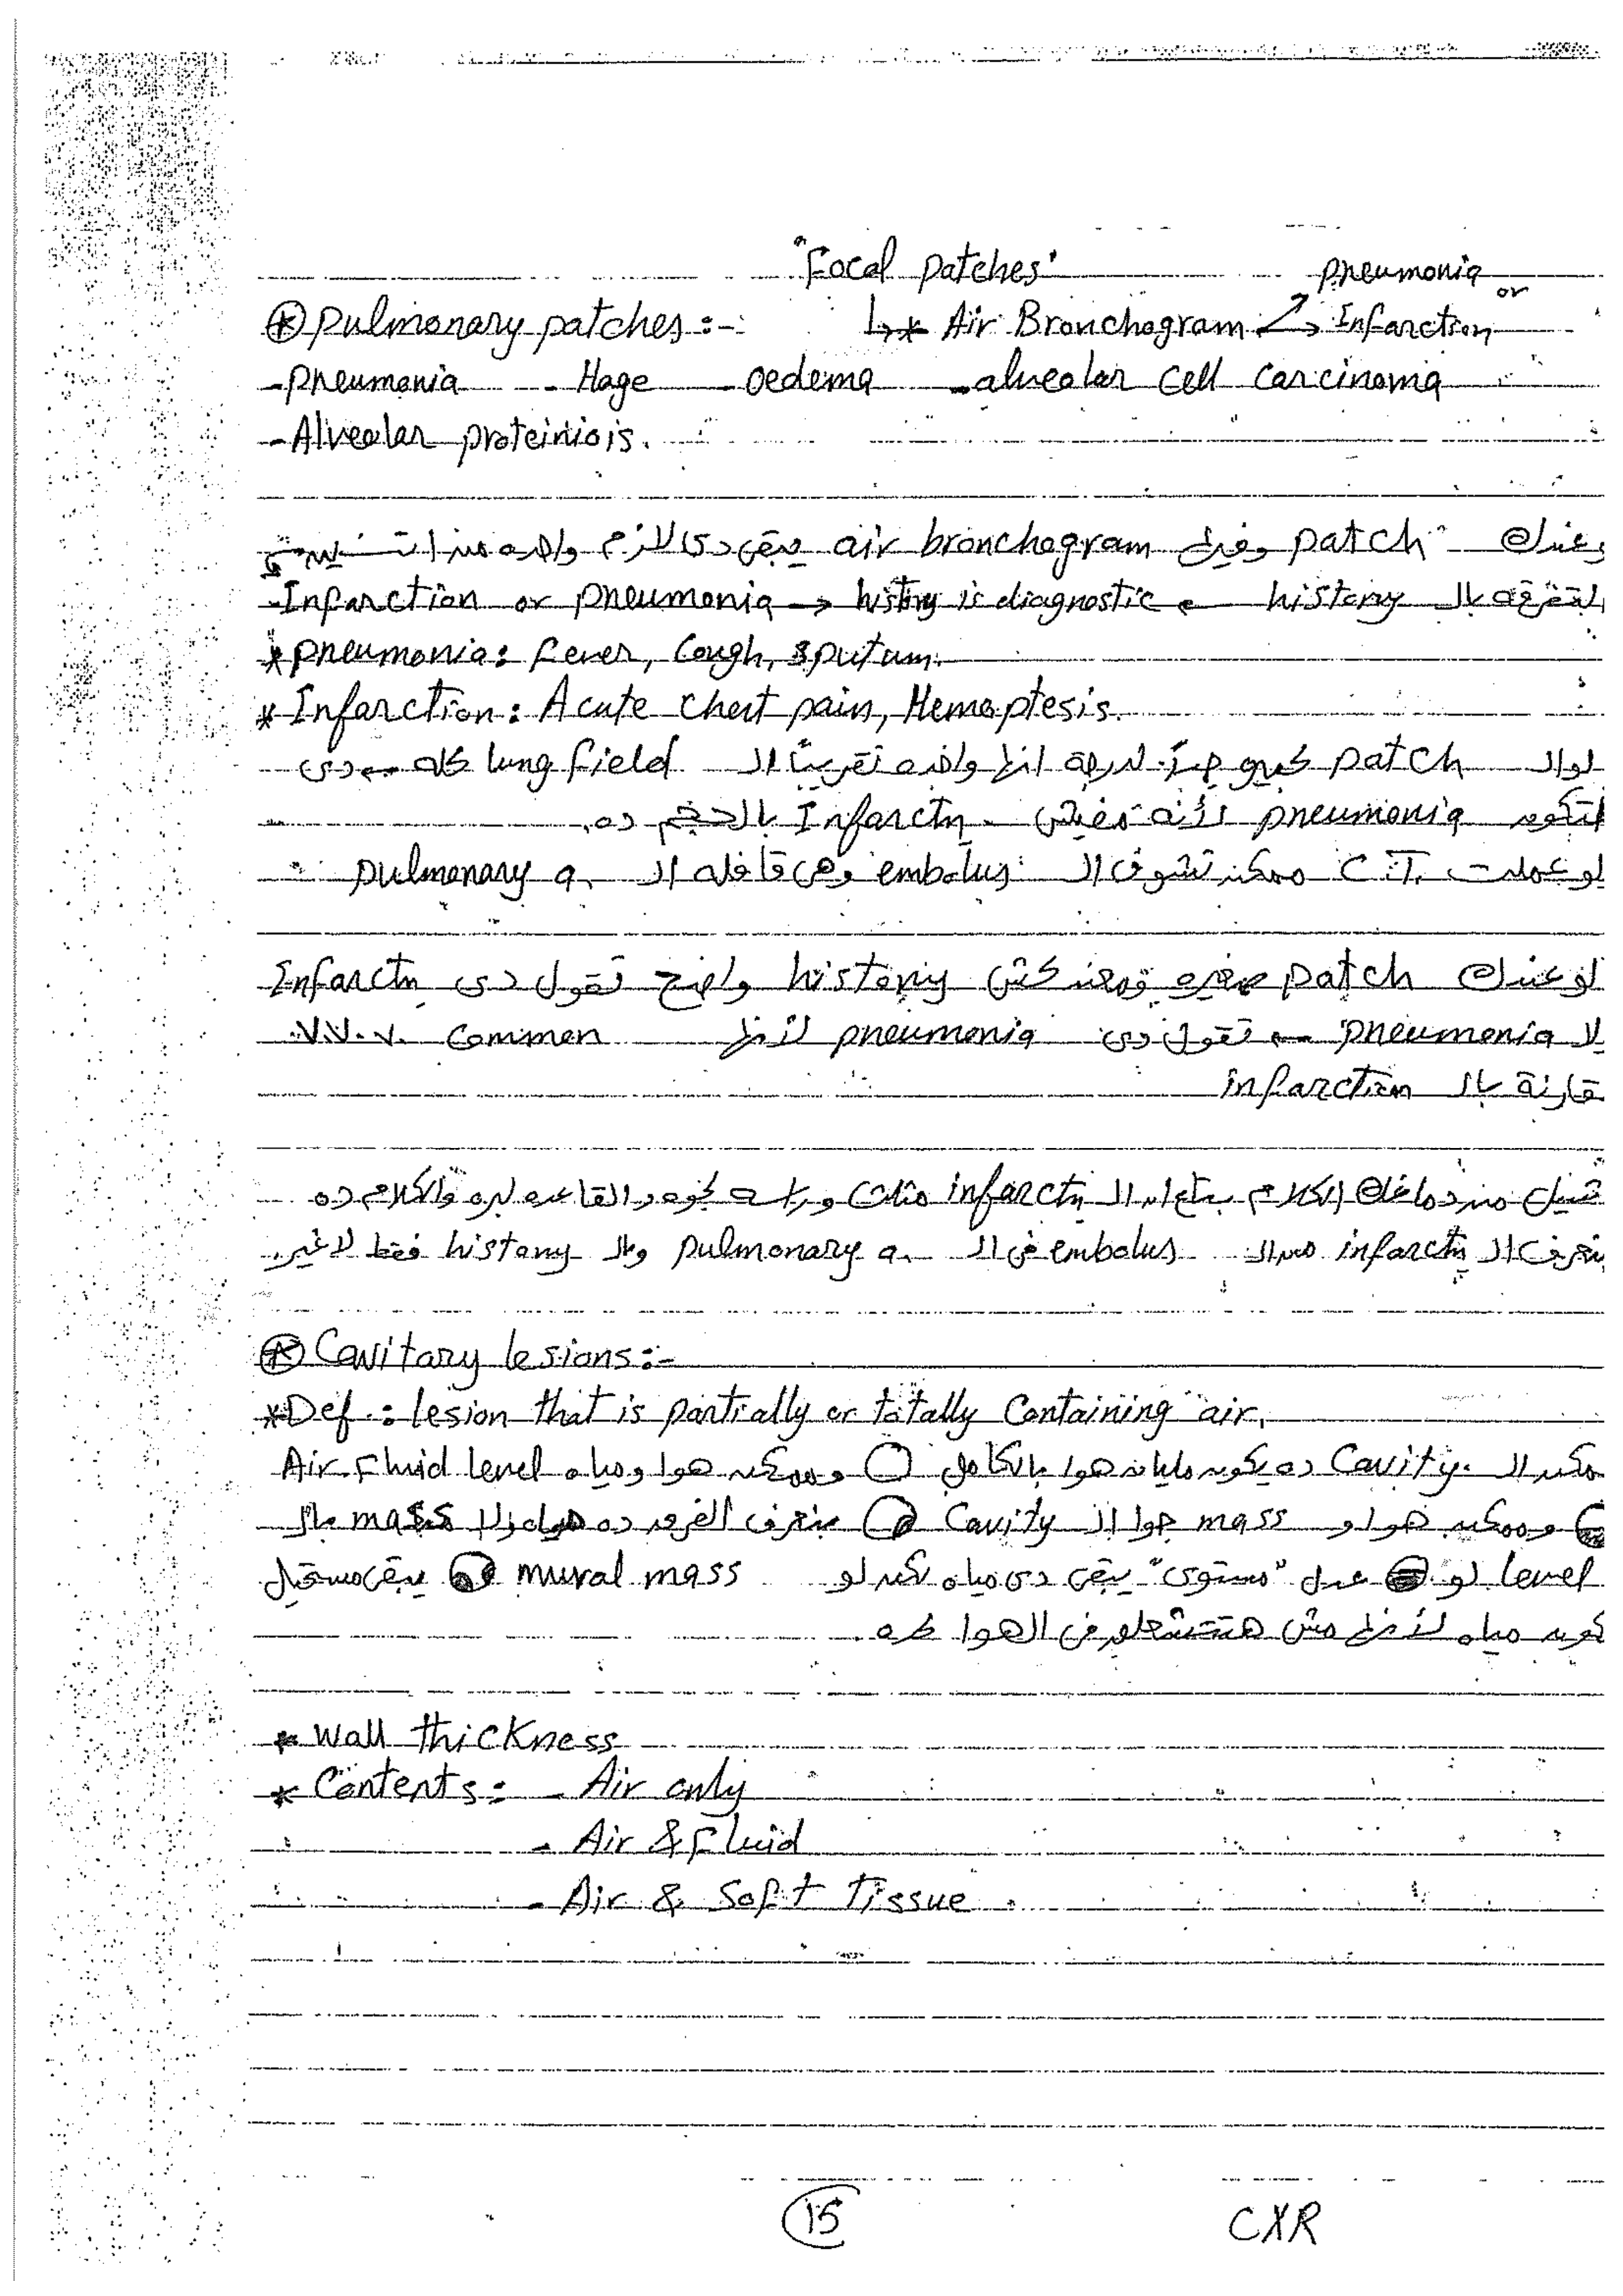 "Focal patches" pneumonia
or
* pulmonary patches :- ↳* Air Bronchogram → Infarction
- pneumonia - Hage - oedema - alveolar cell carcinoma
- Alveolar proteiniois.
عندك patch وفيها air bronchogram يبقى دى لازم واحده من اتنين
- Infarction or pneumonia → history is diagnostic ← التفرقه بالـ history
* pneumonia: Fever, Cough, sputum.
* Infarction: Acute chest pain, Hemoptesis.
لو الـ patch كبيره جداً لدرجة انها واخده تقريباً الـ lung field كله ← دى
تكون pneumonia لأنه مفيش Infarctn بالحجم ده.
لو عملت C.T ممكن تشوف الـ embolus وهى قافله الـ pulmonary a.
لو عندك patch صغيره ومعندكش history واضح تقول دى Infarctn
لا pneumonia ← تقول دى pneumonia لأنها v.v.v. common
مقارنة بالـ infarction
شيل من دماغك الكلام بتاع ان الـ infarctn مثلث وراسه لجوه والقاعده لبره والكلام ده
بنعرف الـ infarctn من الـ embolus فى الـ pulmonary a. وبالـ history فقط لا غير.
* Cavitary lesions :-
* Def.: lesion that is partially or totally containing air.
ممكن الـ Cavity ده يكون مليان هوا بالكامل وممكن هوا ومياه Air Fluid level
وممكن هوا و mass جوا الـ Cavity بنعرف الفرق ده مياه ولا mass بالـ
level لو عمل "مستوى" يبقى دى مياه لكن لو mural mass يبقى مستحيل
تكون مياه لأنها مش هتتشعلق فى الهوا كده
* Wall thickness
* Contents: - Air only
- Air & Fluid
- Air & Soft Tissue
15 CXR